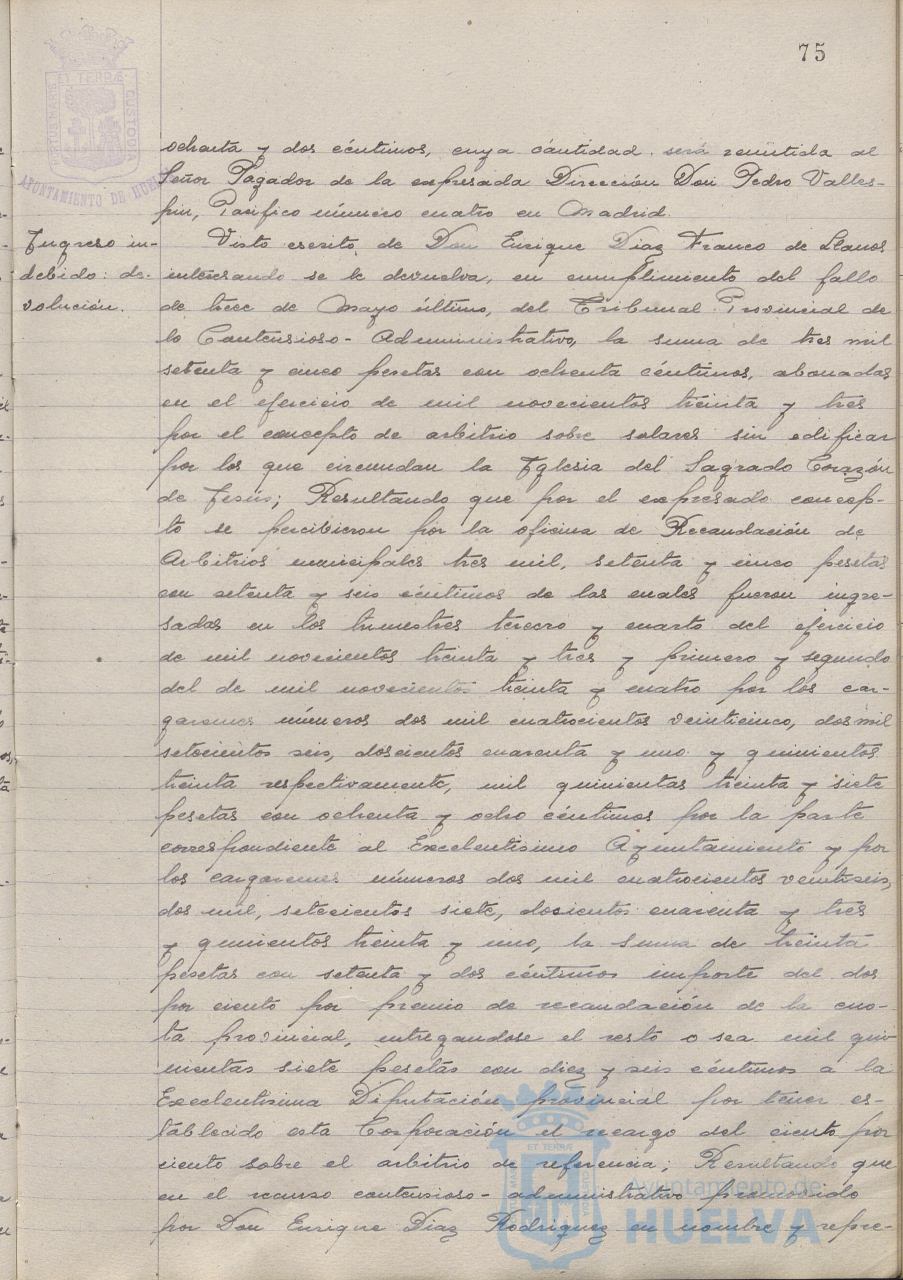 75
PORTUS MARIS ET TERRÆ CUSTODIA
AYUNTAMIENTO DE HUELVA
ochenta y dos céntimos, cuya cantidad será remitida al
Señor Pagador de la expresada Dirección Don Pedro Valles-
pin, Pacifico número cuatro en Madrid.
Ingreso in-
debido: de-
volución.
Visto escrito de Don Enrique Diaz Franco de Llanos
interesando se le devuelva, en cumplimiento del fallo
de trece de Mayo último, del Tribunal Provincial de
lo Contensioso-Administrativo, la suma de tres mil
setenta y cinco pesetas con ochenta céntimos, abonadas
en el ejercicio de mil novecientos treinta y tres
por el concepto de arbitrio sobre solares sin edificar
por los que circundan la Iglesia del Sagrado Corazón
de Jesús; Resultando que por el expresado concep-
to se percibieron por la oficina de Recaudación de
Arbitrios municipales tres mil, setenta y cinco pesetas
con setenta y seis céntimos de las cuales fueron ingre-
sadas en los trimestres tercero y cuarto del ejercicio
de mil novecientos treinta y tres y primero y segundo
del de mil novecientos treinta y cuatro por los car-
garemes números dos mil cuatrocientos veinticinco, dos mil
setecientos seis, doscientos cuarenta y uno y quinientos
treinta respectivamente, mil quinientas treinta y siete
pesetas con ochenta y ocho céntimos por la parte
correspondiente al Excelentisimo Ayuntamiento y por
los cargaremes números dos mil cuatrocientos veintiseis,
dos mil, setecientos siete, dosientos cuarenta y tres
y quinientos treinta y uno, la suma de treinta
pesetas con setenta y dos céntimos importe del dos
por ciento por premio de recaudación de la cuo-
ta provincial, entregandose el resto o sea mil qui-
nientas siete pesetas con diez y seis céntimos a la
Excelentisima Diputación provincial por tener es-
tablecido esta Corporación el recargo del ciento por
ciento sobre el arbitrio de referencia; Resultando que
en el recurso contensioso-administrativo promovido
por Don Enrique Diaz Rodriguez en nombre y repre-
Ayuntamiento de
HUELVA